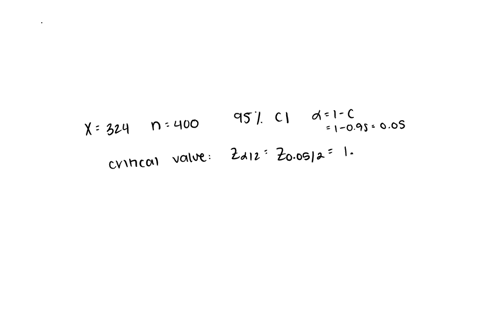 X = 324 n = 400 95% CI α = 1 - C
= 1 - 0.95 = 0.05
critical value: Zα/2 = Z0.05/2 = 1.